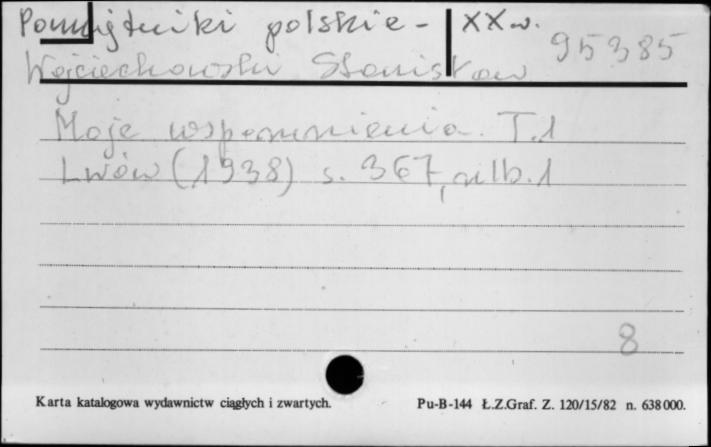 Pamiętniki polskie - XX w.
95385
Wojciechowski Stanisław
Moje wspomnienia. T.1
Lwów (1938) s. 367, nlb. 1
8
Karta katalogowa wydawnictw ciągłych i zwartych. Pu-B-144 Ł.Z.Graf. Z. 120/15/82 n. 638000.